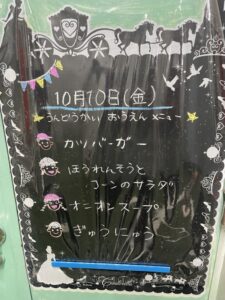 10月10日(金)
うんどうかい おうえん メニュー
カツバーガー
ほうれんそうと
コーンのサラダ
オニオンスープ
ぎゅうにゅう